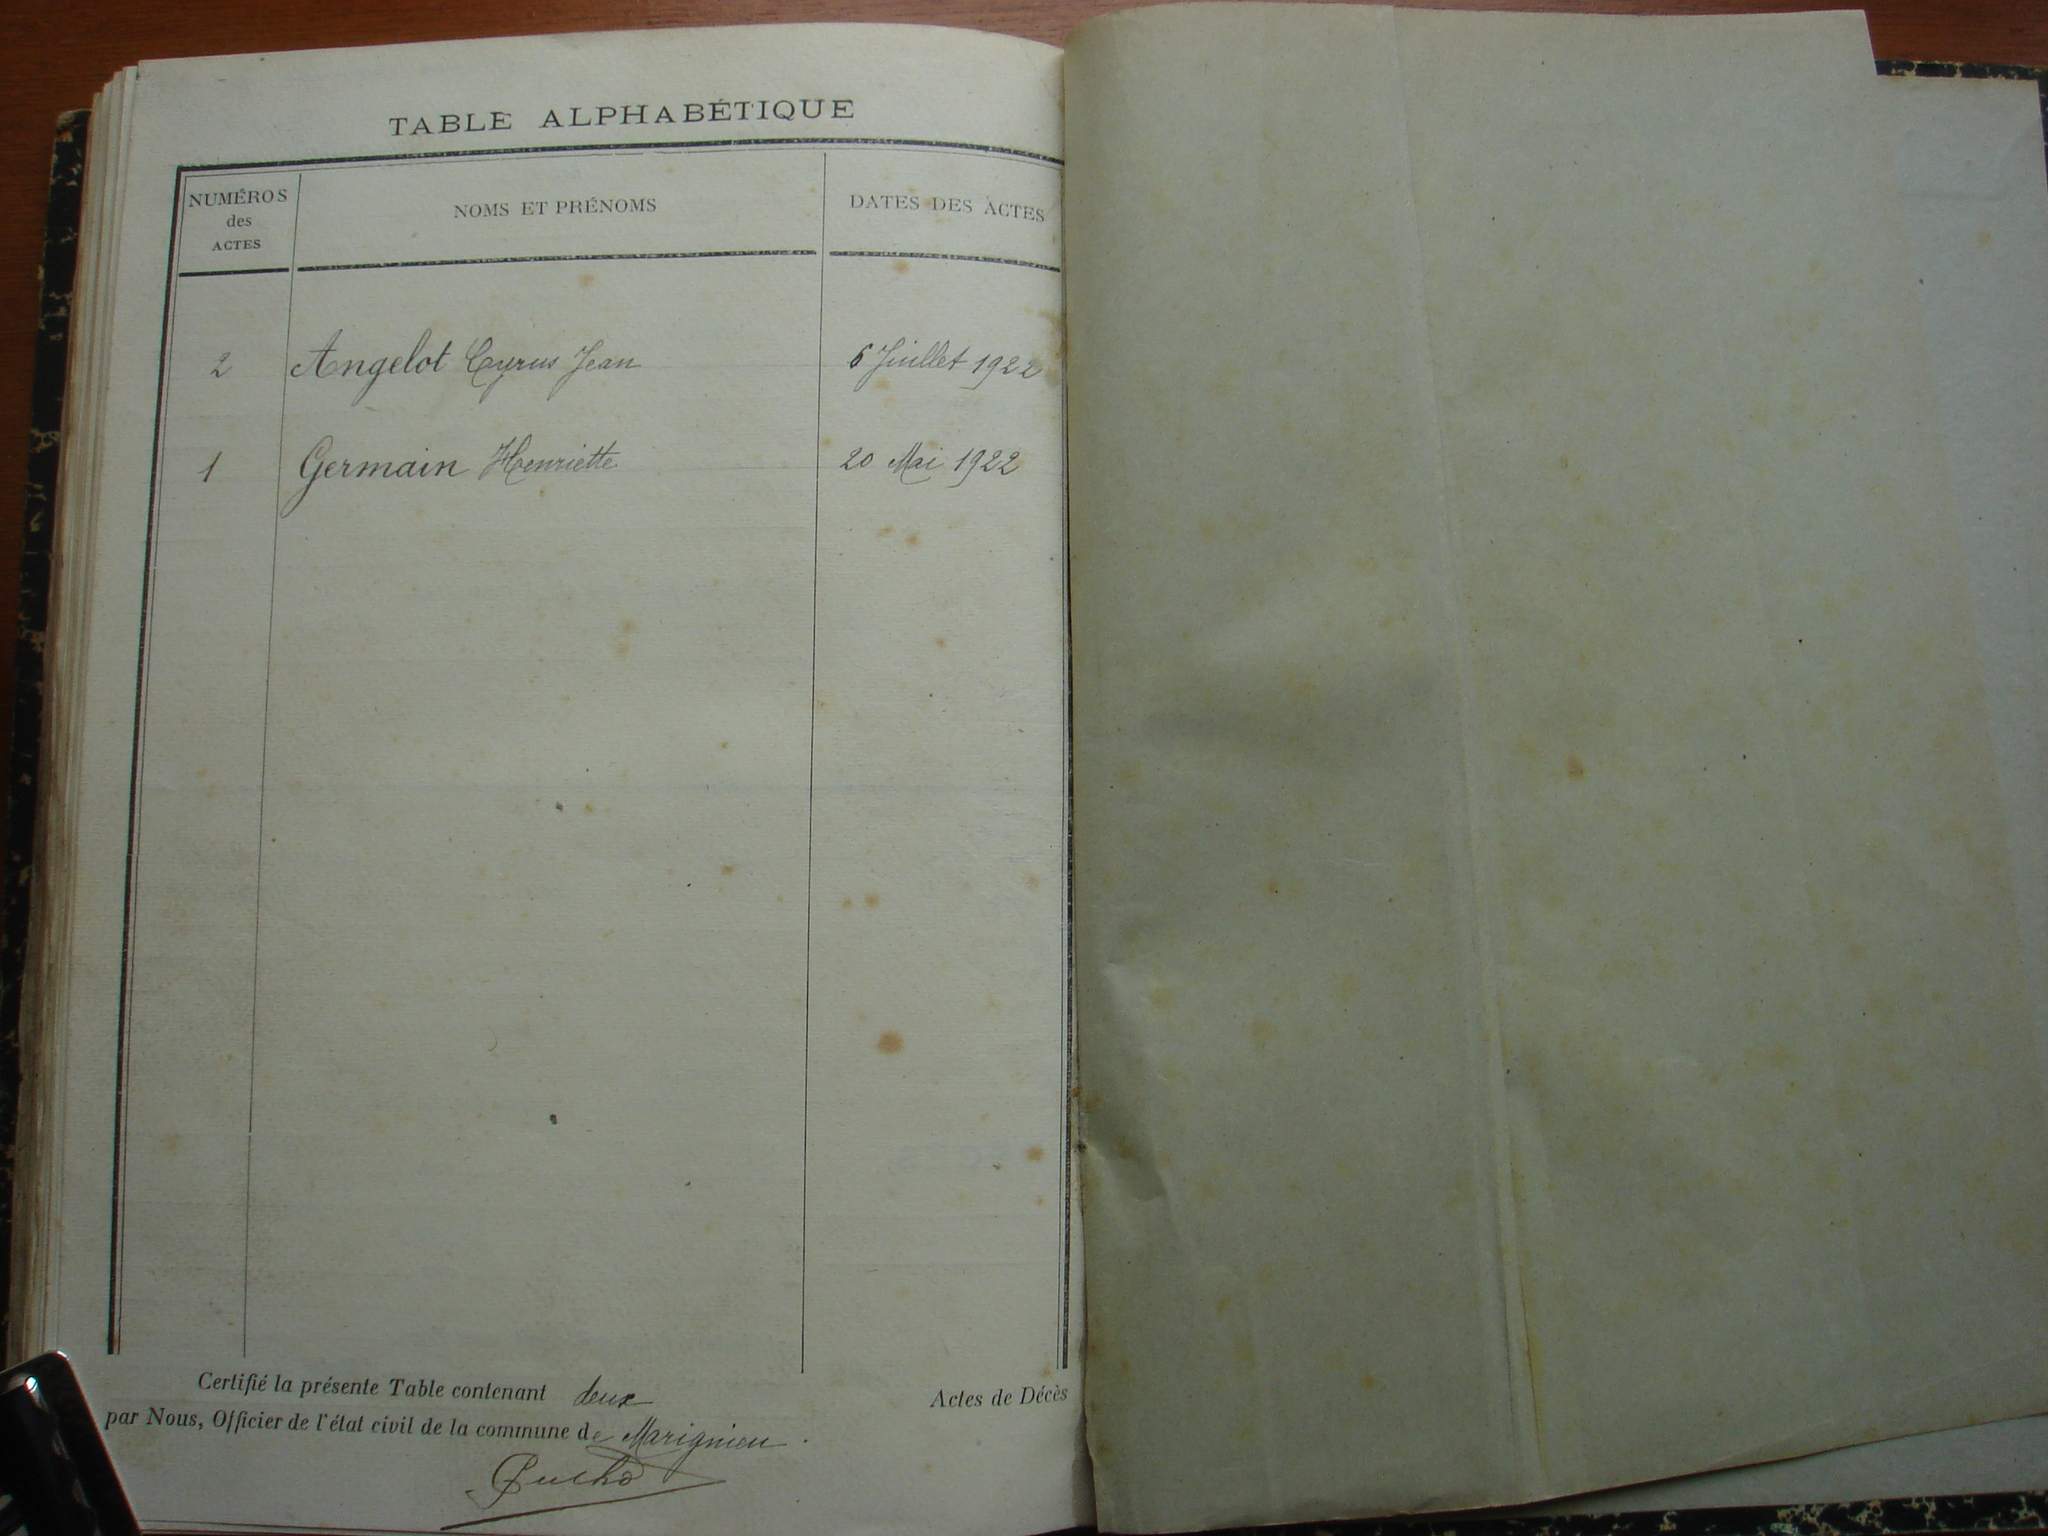 TABLE ALPHABÉTIQUE
NUMÉROS des ACTES
NOMS ET PRÉNOMS
DATES DES ACTES
2 Angelot Cyrus Jean 6 Juillet 1922
1 Germain Henriette 20 Mai 1922
Certifié la présente Table contenant deux Actes de Décès
par Nous, Officier de l'état civil de la commune de Marignieu.